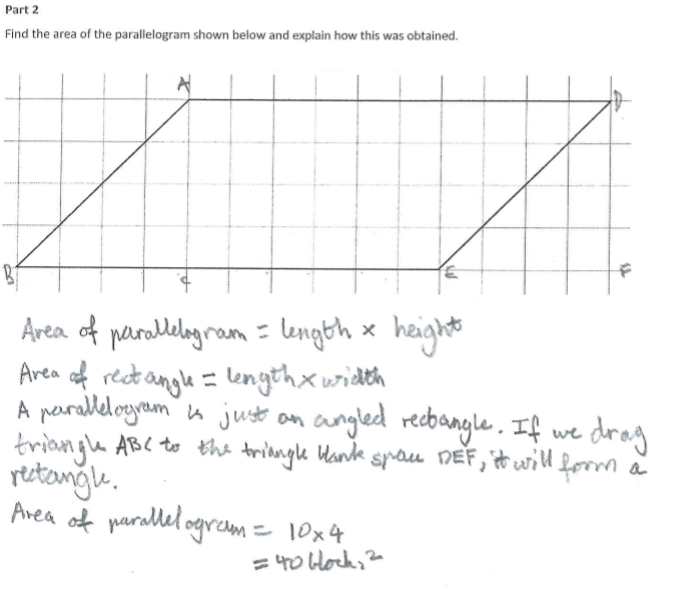 Part 2
Find the area of the parallelogram shown below and explain how this was obtained.
A
D
B
C
E
F
Area of parallelogram = length x height
Area of rectangle = length x width
A parallelogram is just an angled rectangle. If we drag
triangle ABC to the triangle blank space DEF, it will form a
rectangle.
Area of parallelogram = 10x4
= 40 blocks²